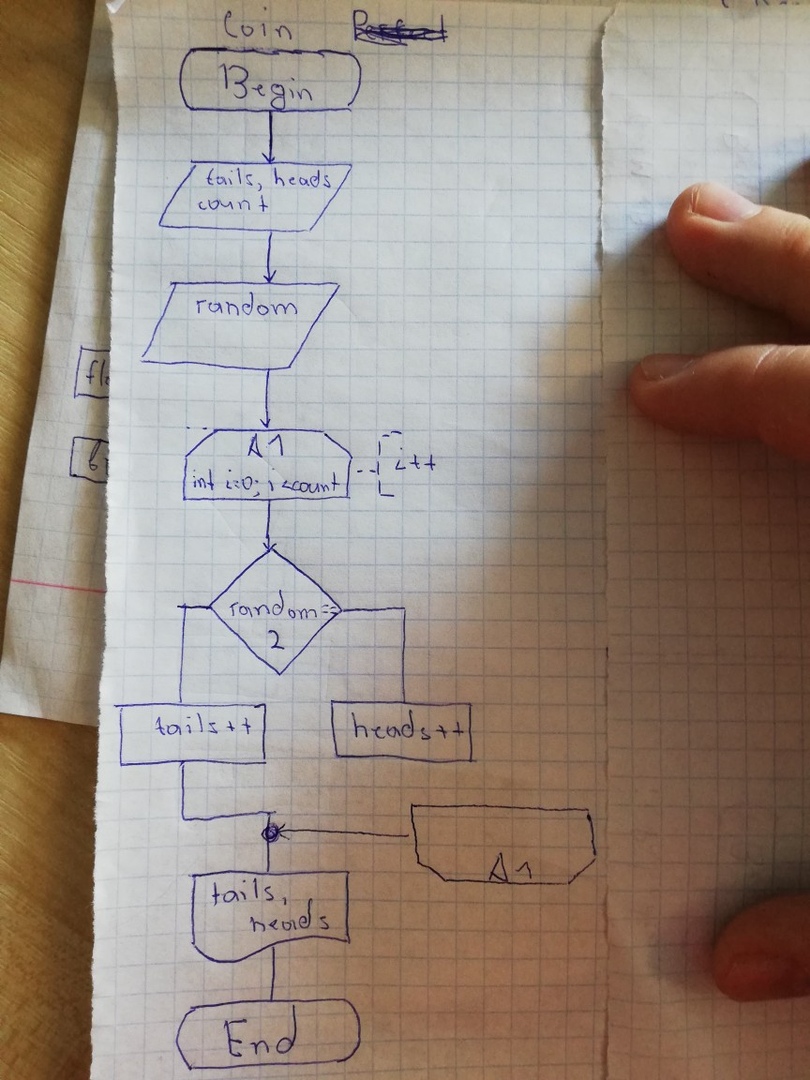 Coin
Begin
tails, heads
count
random
A1
int i=0; i<count
i++
random==
2
tails++
heads++
A1
tails,
heads
End